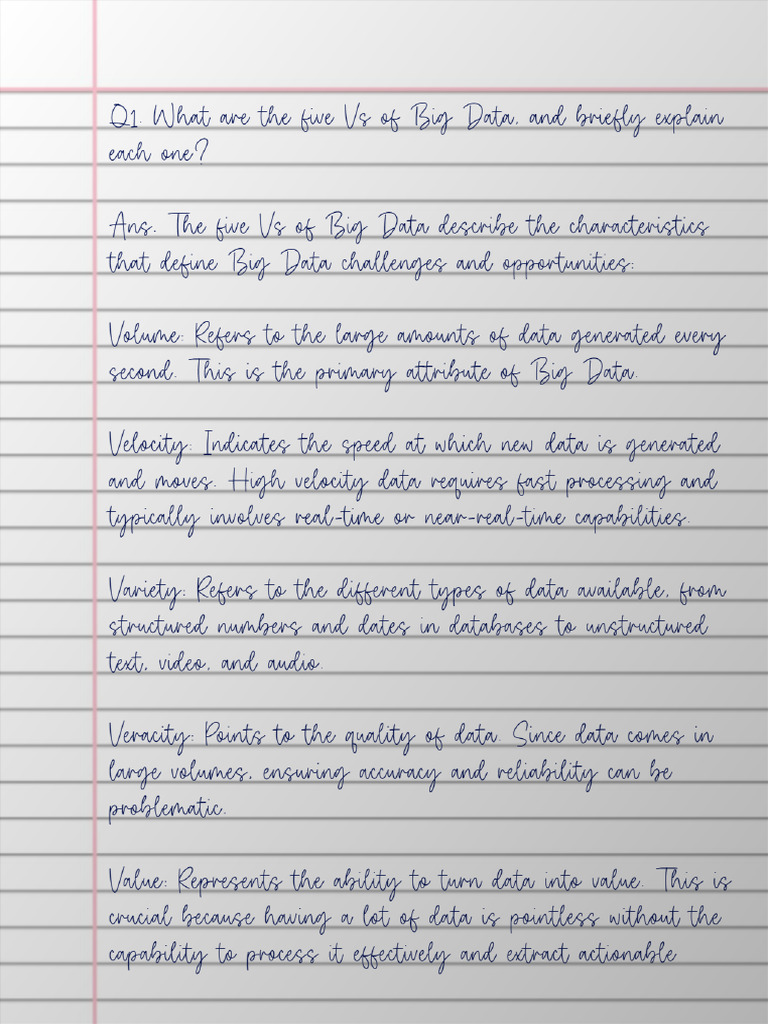 Q1. What are the five Vs of Big Data, and briefly explain
each one?
Ans. The five Vs of Big Data describe the characteristics
that define Big Data challenges and opportunities:
Volume: Refers to the large amounts of data generated every
second. This is the primary attribute of Big Data.
Velocity: Indicates the speed at which new data is generated
and moves. High velocity data requires fast processing and
typically involves real-time or near-real-time capabilities.
Variety: Refers to the different types of data available, from
structured numbers and dates in databases to unstructured
text, video, and audio.
Veracity: Points to the quality of data. Since data comes in
large volumes, ensuring accuracy and reliability can be
problematic.
Value: Represents the ability to turn data into value. This is
crucial because having a lot of data is pointless without the
capability to process it effectively and extract actionable